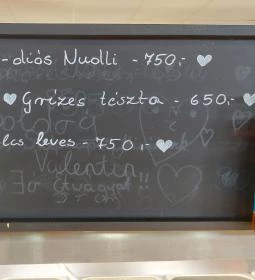 -diós Nudli - 750,-
Grízes tészta - 650,-
las leves - 750,-
Valentin
Jó étvágyat!!